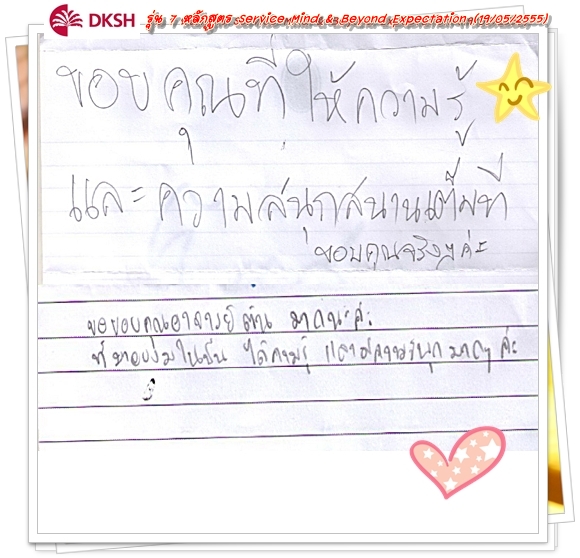 DKSH รุ่น 7 หลักสูตร Service Mind & Beyond Expectation (19/05/2555)
ขอบคุณที่ให้ความรู้
และความสนุกสนานเต็มที่
ขอบคุณจริงๆค่ะ
ขอขอบคุณอาจารย์ มากนะค่ะ
ที่มาอบรมให้ ได้ความรู้ และมีความสนุกมากๆ ค่ะ